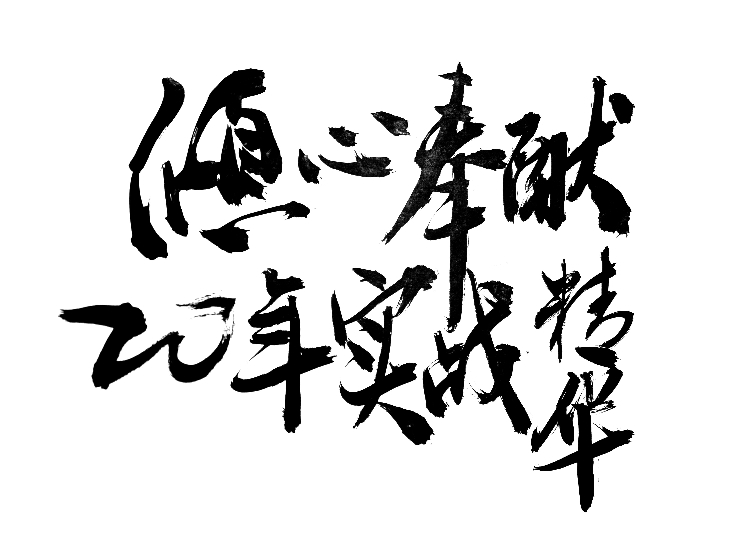 倾心奉献
20年实战精华